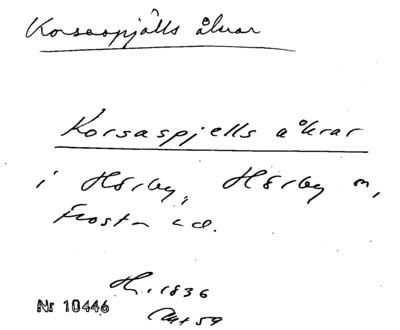 Korsaspjälls åkrar
Korsaspjells åkrar
i Hörby, Hörby sn,
Frosta hd.
H. 1836
Nr 10446
Akt 59